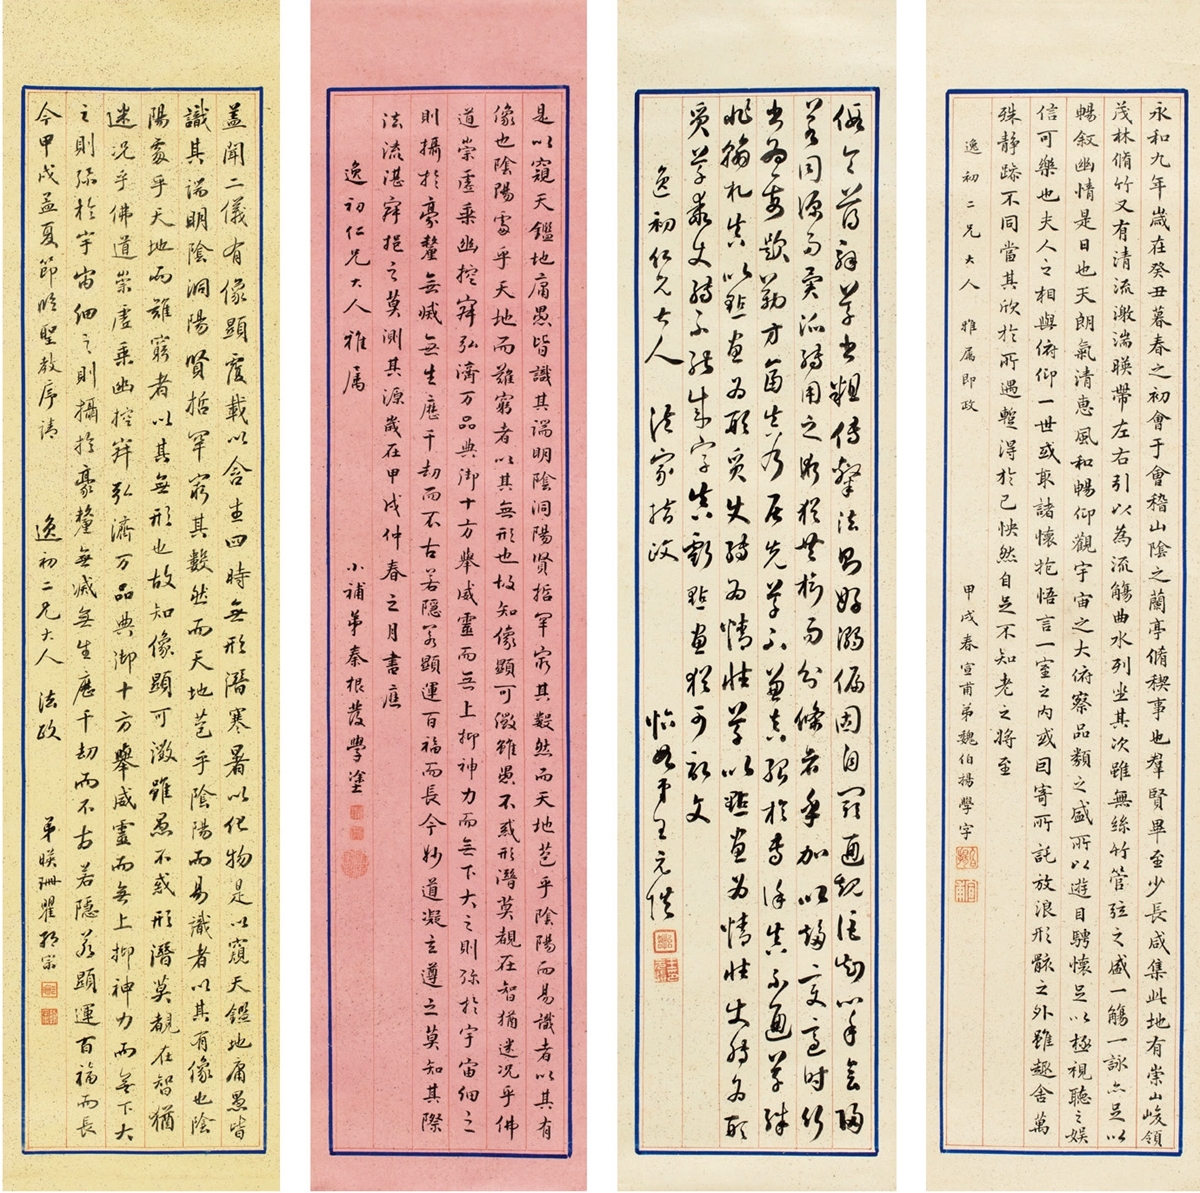 永和九年歲在癸丑暮春之初會于會稽山陰之蘭亭脩稧事也羣賢畢至少長咸集此地有崇山峻領
茂林脩竹又有清流激湍暎帶左右引以為流觴曲水列坐其次雖無絲竹管弦之盛一觴一詠亦足以
暢敘幽情是日也天朗氣清惠風和暢仰觀宇宙之大俯察品類之盛所以遊目騁懷足以極視聽之娛
信可樂也夫人之相與俯仰一世或取諸懷抱悟言一室之內或因寄所託放浪形骸之外雖趣舍萬
殊靜躁不同當其欣於所遇蹔得於己怏然自足不知老之將至
逸初二兄大人 雅属即政 甲戌春宣甫弟魏伯揚學字
假令薄解草書粗傳隸法則好溺偏固自閡通規詎知心手會歸
若同源而異派轉用之術猶共樹而分條者乎加以趨變適時行
書為要題勒方畐真乃居先草不兼真殆於專謹真不通草殊
非翰札真以點畫為形質使轉為情性草以點畫為情性使轉為形
質草乖使轉不能成字真虧點畫猶可記文
逸初仁兄大人 法家指政 弟王元
是以窺天鑑地庸愚皆識其端明陰洞陽賢哲罕窮其數然而天地苞乎陰陽而易識者以其有
像也陰陽處乎天地而難窮者以其無形也故知像顯可徵雖愚不惑形潛莫覩在智猶迷況乎佛
道崇虛乘幽控寂弘濟万品典御十方舉威靈而無上抑神力而無下大之則弥於宇宙細之
則攝於豪釐無滅無生歷千劫而不古若隱若顯運百福而長今妙道凝玄遵之莫知其際
法流湛寂挹之莫測其源歲在甲戌仲春之月書應
逸初仁兄大人雅属 小補弟秦根發學塗
蓋聞二儀有像顯覆載以含生四時無形潛寒暑以化物是以窺天鑑地庸愚皆
識其端明陰洞陽賢哲罕窮其數然而天地苞乎陰陽而易識者以其有像也陰
陽處乎天地而難窮者以其無形也故知像顯可徵雖愚不惑形潛莫覩在智猶
迷況乎佛道崇虛乘幽控寂弘濟万品典御十方舉威靈而無上抑神力而無下大
之則弥於宇宙細之則攝於豪釐無滅無生歷千劫而不古若隱若顯運百福而長
今甲戌孟夏節臨聖教序請 逸初二兄大人 法政 弟暎珊瞿宗